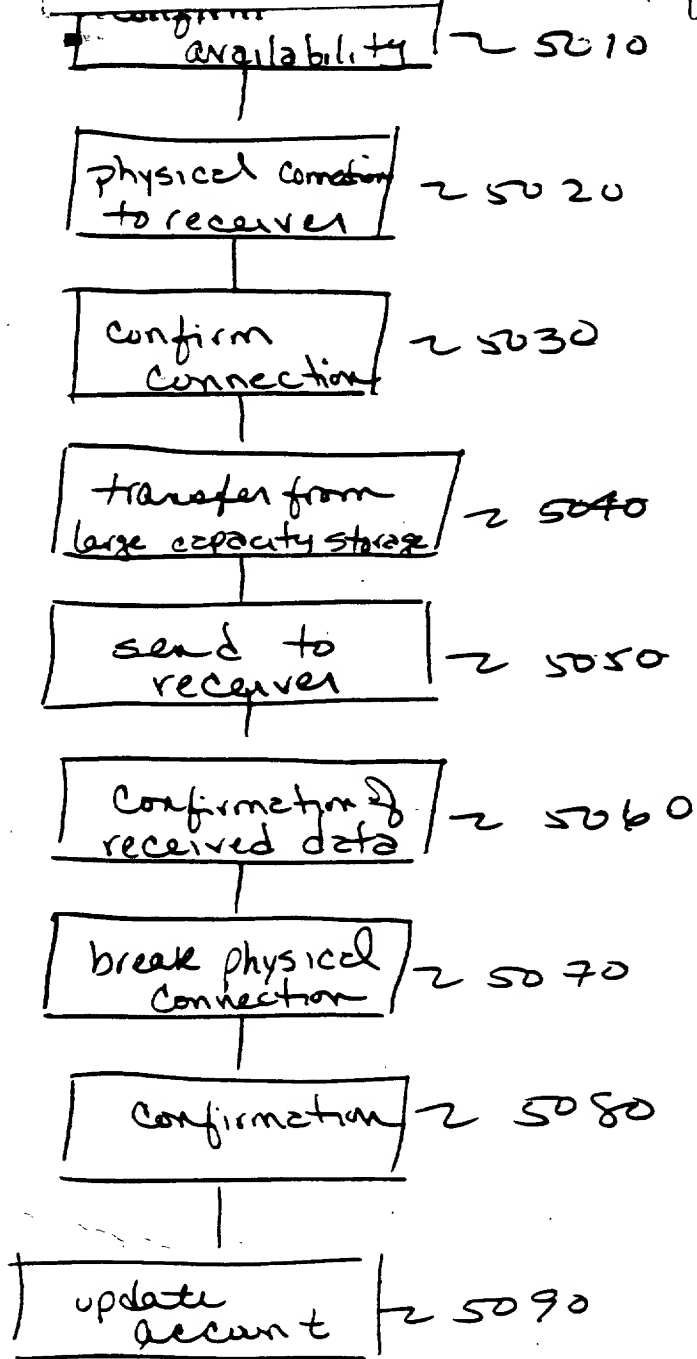 confirm
availability ~ 5010
physical connection
to receiver ~ 5020
confirm
connection ~ 5030
transfer from
large capacity storage ~ 5040
send to
receiver ~ 5050
Confirmation of
received data ~ 5060
break physical
connection ~ 5070
Confirmation ~ 5080
update
account ~ 5090